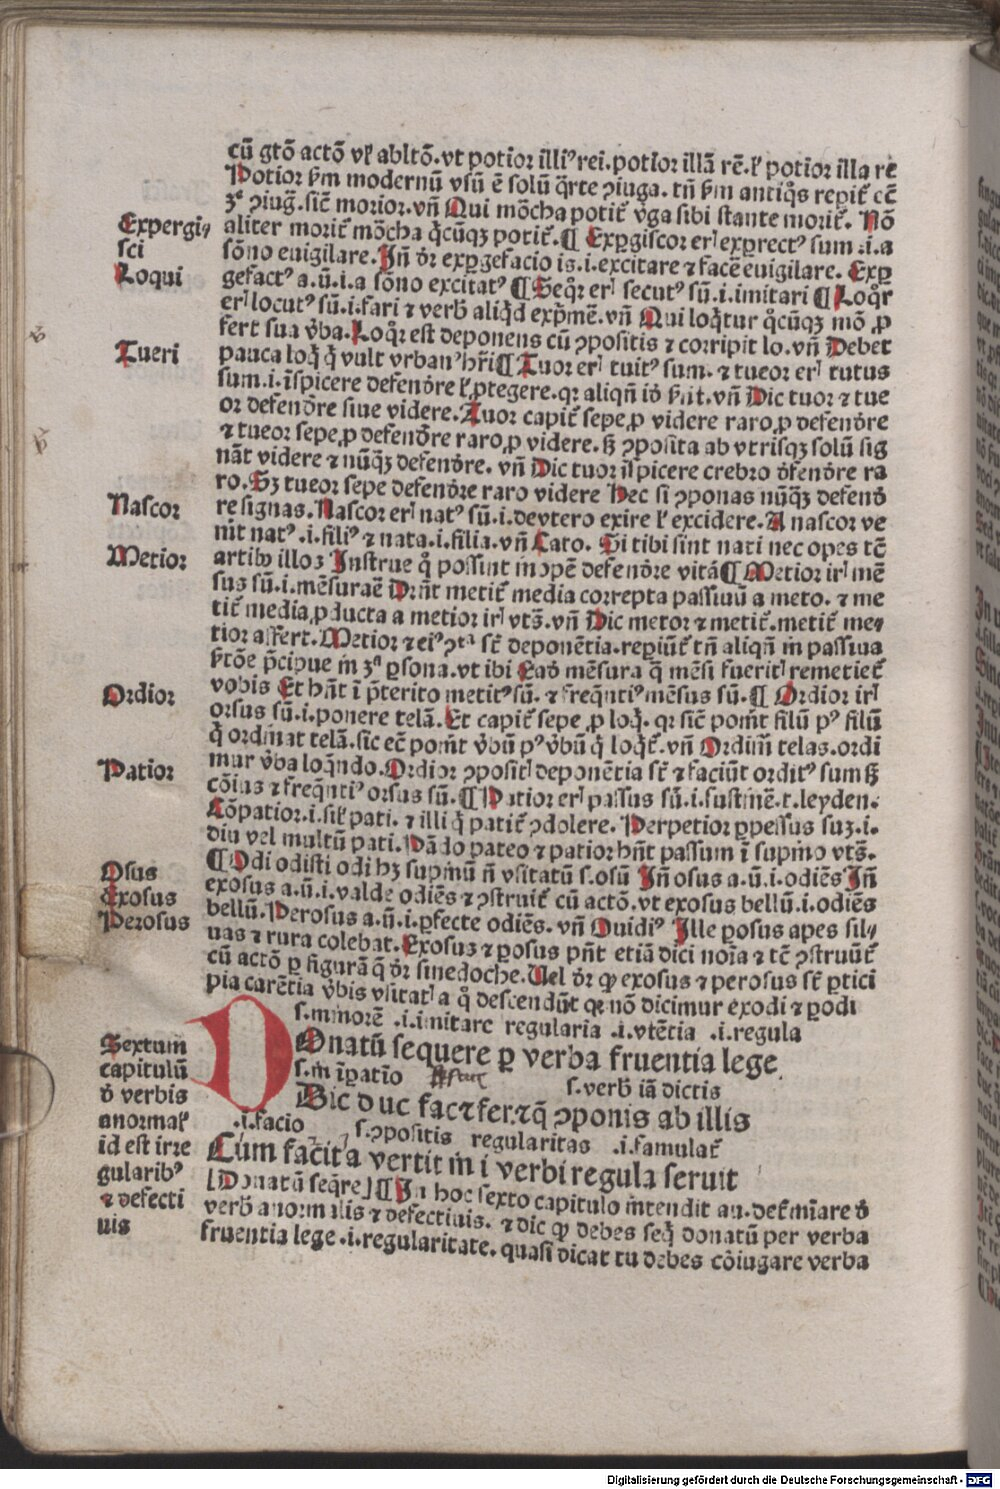 cū gtō actō vl̕ abltō. vt potior illiꝰ rei. potior illā rē. l̕ potior illa re
Potior ẜm modernū vsū ē solū q̈rte ꝯiuga. tn̄ ẜm antiq̄s repit᷑ eē
ꝫᵉ ꝯiug̈. sic̄ morior. vn̄ Qui mōcha potit᷑ v̓ga sibi stante morit᷑. Nō
aliter morit᷑ mōcha q̄cūqꝫ potit᷑. ¶ Exꝑgiscor erꝭ exꝑrectꝰ sum .i. a
sōno euigilare. Jn̄ dr̄ exꝑgefacio is .i. excitare ⁊ facē euigilare. Exꝑ
gefactꝰ a. ū. i. a sōno excitatꝰ ¶ Seq̄r erꝭ secutꝰ sū. i. imitari ¶ Loq̄r
erꝭ locutꝰ sū. i. fari ⁊ verb̄ aliq̇d exp̄mē. vn̄ Qui loq̇tur q̇cūqꝫ mō ꝓ
fert sua v̓ba. Loq̄r est deponens cū ꝯpositis ⁊ corripit lo. vn̄ Debet
pauca loq̇ q̇ vult vrbanꝰ hr̄i ¶ Tuor erꝭ tuitꝰ sum. ⁊ tueor erꝭ tutus
sum. i. īspicere defendēre l̕ ꝓtegere. qr aliqn̄ iō ẜit. vn̄ Dic tuor ⁊ tue
or defendēre siue videre. Tuor capit᷑ sepe, ꝓ videre raro, ꝓ defendēre
⁊ tueor sepe, ꝓ defendēre raro, ꝓ videre. ß ꝯposita ab vtrisqꝫ solū sig
nāt videre ⁊ nūq̄ꝫ defendēre. vn̄ Dic tuor īspicere crebro defendēre ra
ro. Sꝫ tueor sepe defendēre raro videre Hec si ꝯponas nūq̄ꝫ defend̄
re signas. Nascor erꝭ natꝰ sū. i. de vtero exire l̕ excidere. A nascor ve
nit natꝰ .i. filiꝰ ⁊ nata .i. filia. vn̄ Cato. Si tibi sint nati nec opes tē
artibꝰ illoꝫ Instrue q̇ possint inopē defendēre vitā ¶ Metior irꝭ mē
sus sū. i. mēsurāē Drn̄t metit᷑ media correpta passiuū a meto. ⁊ me
tit᷑ media, ꝓducta a metior irꝭ vtꝭ. vn̄ Dic metor ⁊ metit᷑. metit᷑ me
tior affert. Metior ⁊ eiꝰ ꝯtᵃ st̄ deponētia. reꝑiūt᷑ tn̄ aliqn̄ in passiua
ẜtōe p̄cipue in ꝫᵃ ꝑsona. vt ibi Ead̄ mēsura q̄ mēsi fueritꝭ remetiet᷑
vobis Et hn̄t ī p̄terito metitꝰ sū. ⁊ freq̄ntiꝰ mēsus sū. ¶ Ordior irꝭ
orsus sū. i. ponere telā. Et capit᷑ sepe, ꝓ loq̇. qr sic̄ pom̄t filū pꝰ filū
q̇ ordinat telā. sic eē pom̄t v̓bū pꝰ v̓bū q̇ loq̇t᷑. vn̄ Ordim̄ telas. ordi
mur v̓ba loq̄ndo. Ordior ꝯpositꝭ deponētia st̄ ⁊ faciūt orditꝰ sum ß
cōius ⁊ freq̄ntiꝰ orsus sū. ¶ Patior erꝭ passus sū. i. sustinē. t. leyden.
Cōpatior .i. sil̕ pati. ⁊ illi q̇ patit᷑ ꝯdolere. Perpetior ꝑpessus suꝫ. i.
diu vel multū pati. Pādo pateo ⁊ patior hn̄t passum ī supino vtꝭ.
¶ Odi odisti odi hꝫ supinū n̄ vsitatū s. osū Jn̄ osus a. ū. i. odiēs Jn̄
exosus a. ū. i. valde odiēs ⁊ ꝯstruit᷑ cū actō. vt exosus bellū. i. odiēs
bellū. Perosus a. ū. i. ꝑfecte odiēs. vn̄ Ouidiꝰ Ille ꝑosus apes sil
uas ⁊ rura colebat. Exosus ⁊ ꝑosus pn̄t etiā dici noīa ⁊ tē ꝯstruūt᷑
cū actō ꝑ figurā q̄ dr̄ sinedoche. Uel dr̄ ꝙ exosus ⁊ perosus st̄ ꝑtici
pia carētia v̓bis vsitatꝭ a q̄ descendūt qꝛ nō dicimur exodi ⁊ ꝑodi
s. minorē .i. imitare regularia .i. vtētia .i. regula
DOnatū sequere ꝑ verba fruentia lege
s. in īꝑatīo s. verb̄ iā dictis
Bic duc fac ⁊ fer. ⁊ q̄ ꝯponis ab illis
.i. facio s. ꝯpositis regularitas .i. famulat᷑
Cum facit a vertit in i verbi regula seruit
[Donatū seq̄re] ¶ In hoc sexto capitulo intendit au. det̄mīare d̄
verb̄ anormalis ⁊ defectiuis. ⁊ dic ꝙ debes seq̇ donatū per verba
fruentia lege .i. regularitate. quasi dicat tu debes cōiugare verba
Expergi
sci
Loqui
Tueri
Nascor
Metior
Ordior
Patior
Osus
Exosus
Perosus
Sextum
capitulū
d̄ verbis
anormal̕
id est irre
gularibꝰ
⁊ defecti
uis
Digitalisierung gefördert durch die Deutsche Forschungsgemeinschaft - DFG